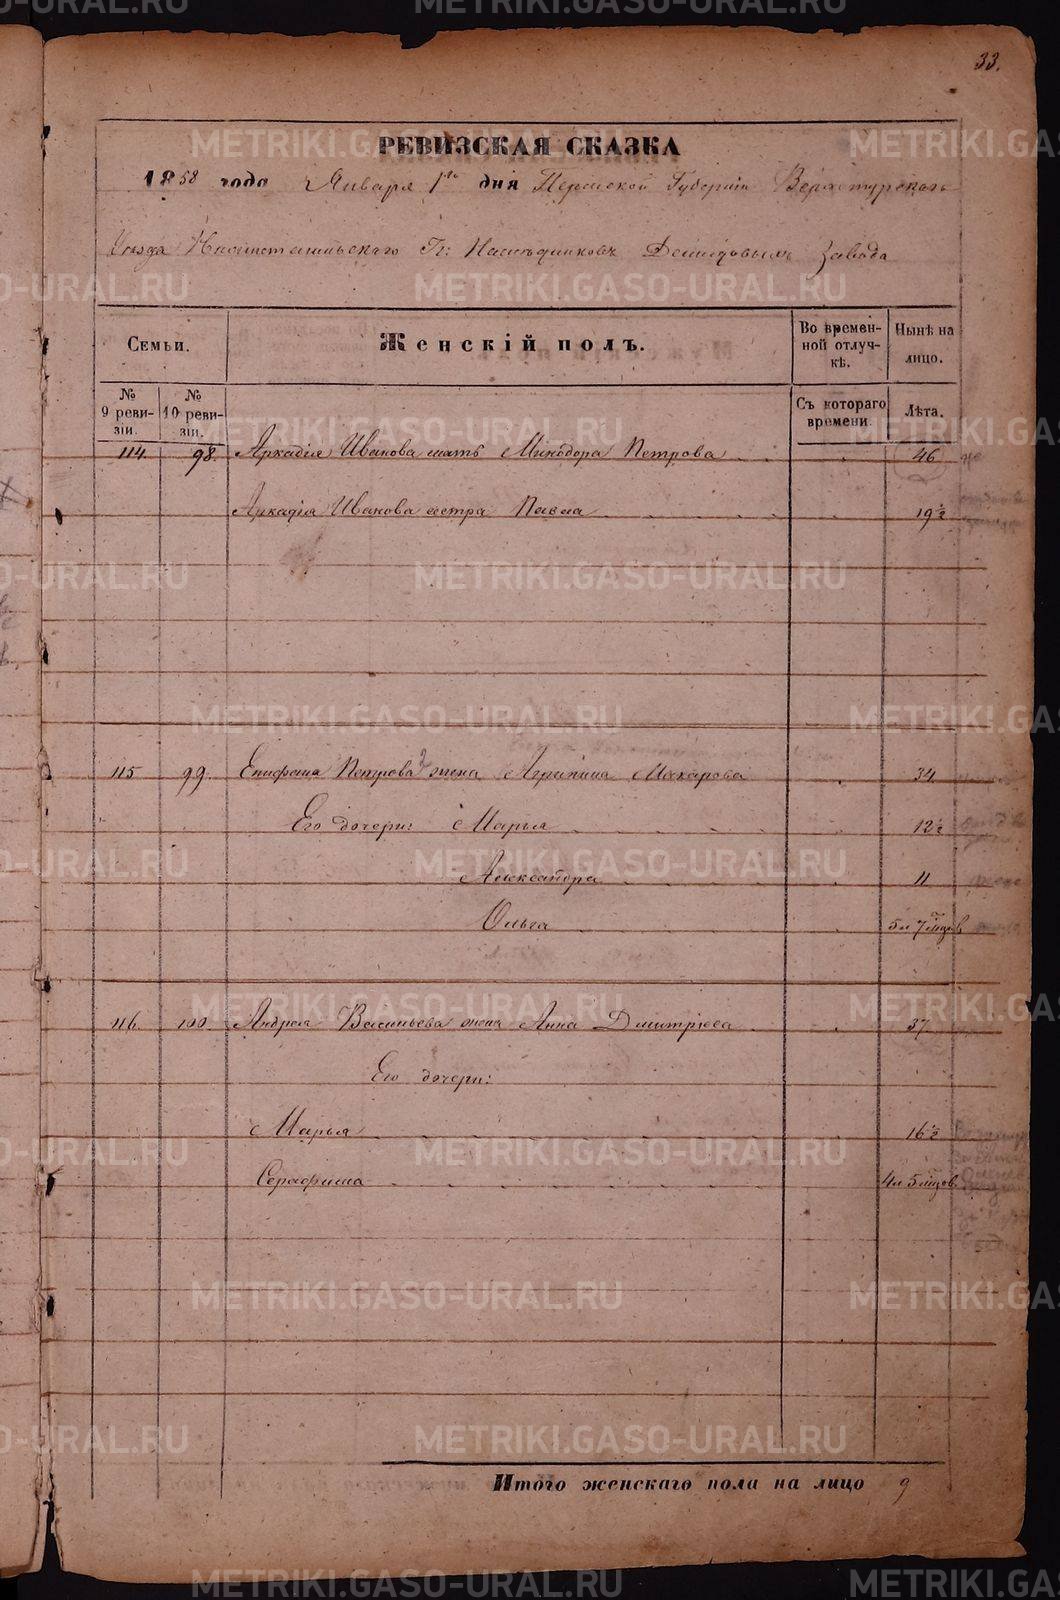 33.
РЕВИЗСКАЯ СКАЗКА
1858 года Января 1го дня Пермской Губернiи Верхотурскаго
Уѣзда Гг: Наслѣдниковъ Демидовыхъ завода
Семьи.
Женскiй полъ.
Во времен-
ной отлуч-
кѣ.
Нынѣ на
лицо.
№
9 реви-
зiи.
№
10 реви-
зiи.
Съ котораго
времени.
Лѣта.
114. 98. Аркадiя Иванова мать Минодора Петрова 46
Аркадiя Иванова сестра Павла 19½
115 99. Епифана Петрова 2 жена Агрипина Макарова 34
Его дочери: Марья 12½
Александра 11
Ольга 5л 7мцов
116. 100. Андрея Васильева жена Анна Дмитрiева 37
Его дочери:
Марья 16½
Серафима 4л 5мцов.
Итого женскаго пола на лицо 9
METRIKI.GASO-URAL.RU